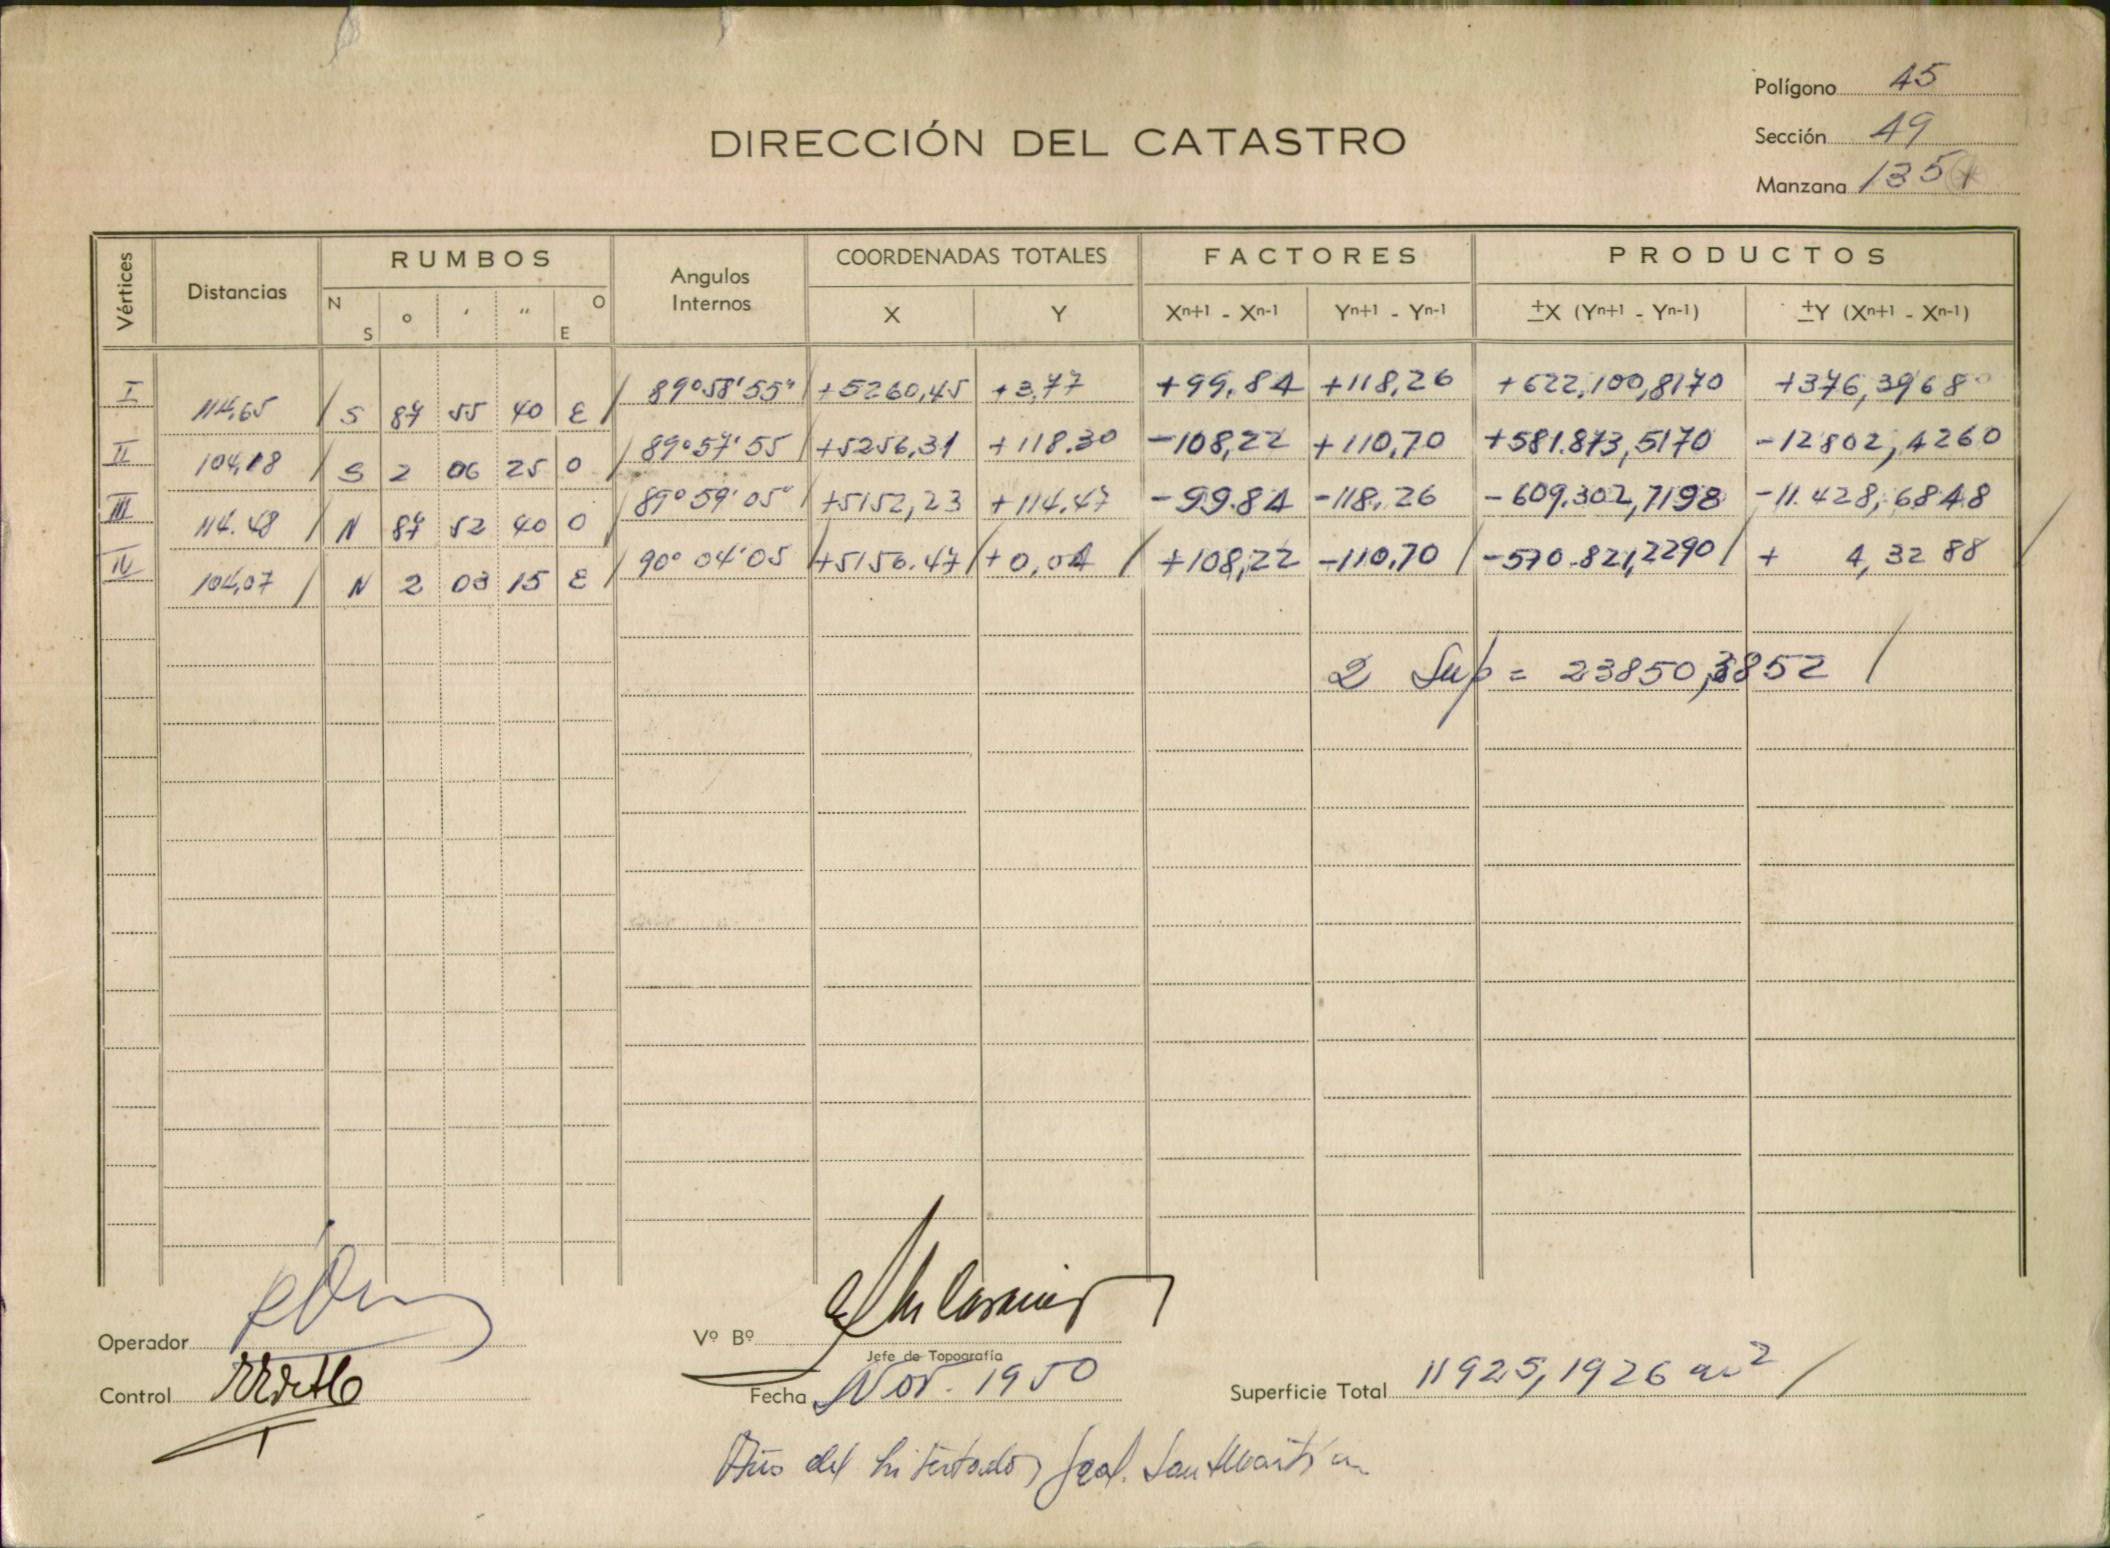 Polígono 45
DIRECCIÓN DEL CATASTRO
Sección 49
Manzana 135
Vértices Distancias RUMBOS Angulos Internos COORDENADAS TOTALES FACTORES PRODUCTOS
N S o ' " O E X Y Xn+1 - Xn-1 Yn+1 - Yn-1 ±X (Yn+1 - Yn-1) ±Y (Xn+1 - Xn-1)
I 114,65 / S 87 55 40 E / 89º58'55" +5260,45 +3,77 +99,84 +118,26 +622,100,8170 +376,3968
II 104,18 / S 2 06 25 O / 89º57'55 +5256,31 +118.30 -108,22 +110,70 +581.873,5170 -12802,4260
III 114.48 / N 87 52 40 O / 89º59'05" +5152,23 +114.47 -99.84 -118,26 -609.302,7198 -11.428,6848
IV 104,07 / N 2 03 15 E / 90º04'05 +5156.47 / +0,04 / +108,22 -110,70 / -570.821,2290 / + 4,3288 /
2 Sup = 23850,3852 /
Operador
Vº Bº
Jefe de Topografía
Control
Fecha Nov. 1950
Superficie Total 11925,1926 m2 /
Año del Libertador Gral. San Martín